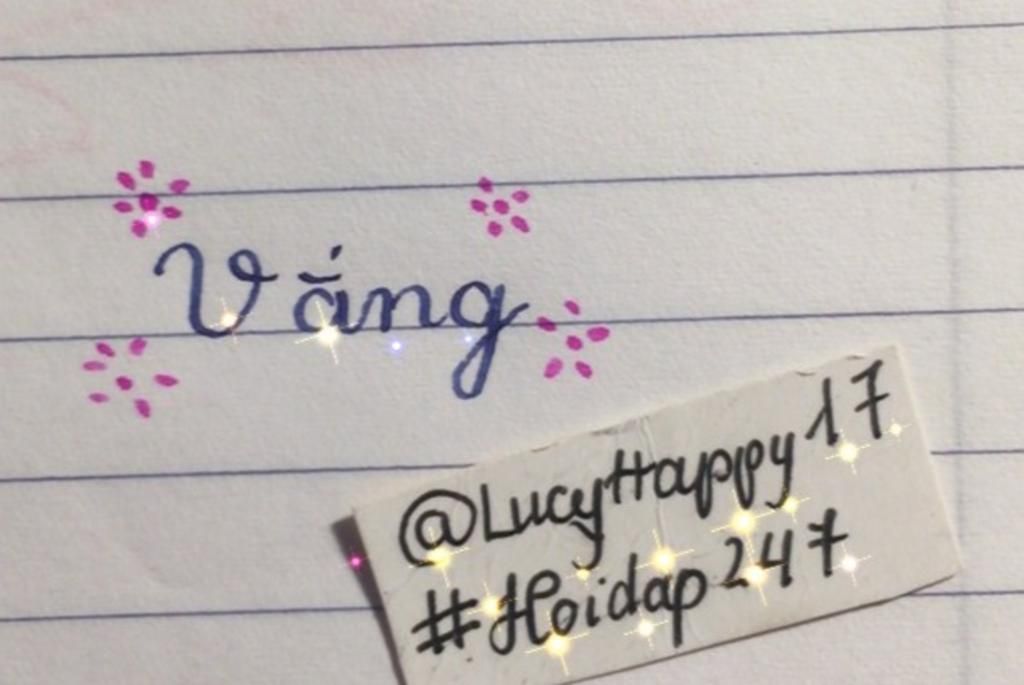 Vắng
@LucyHappy17
#Hoidap247